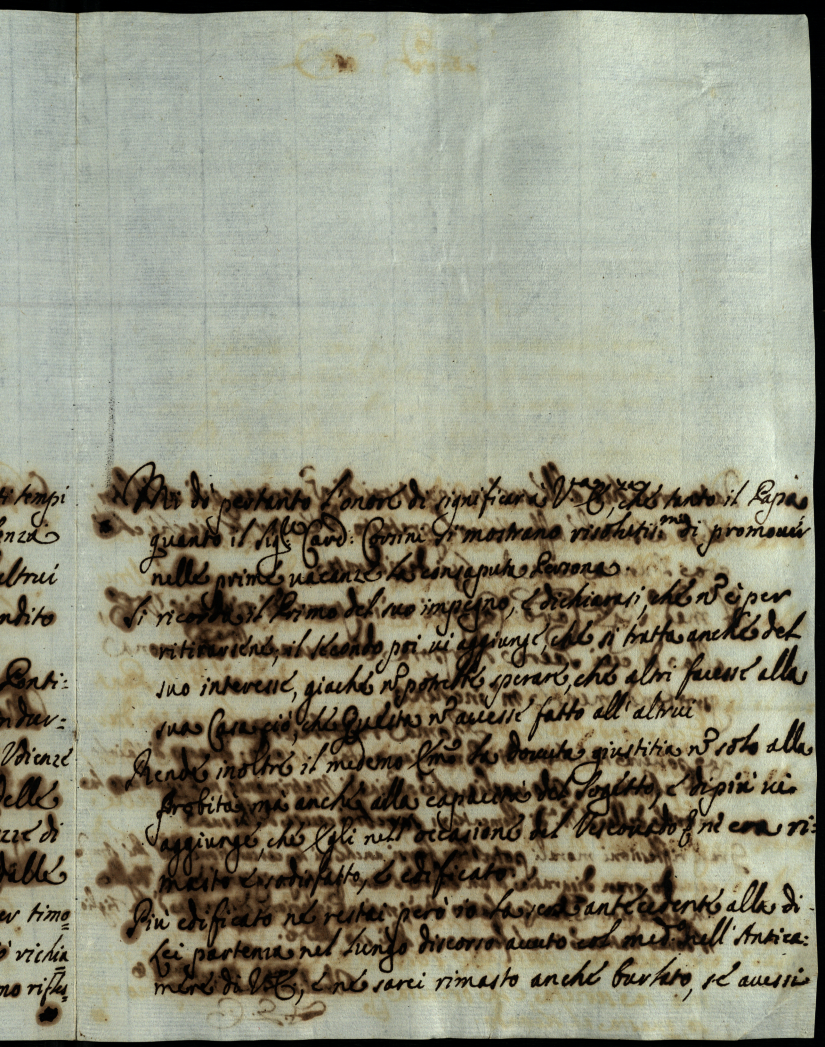 ti tempi
enza
altrui
ndito
Ponti:
ndur-
Udienze
delle
zze di
dalle
er timo=
vichia
mo rifles=
Mi dò pertanto l'onore di significar à V.ra E.za, che tanto il Papa
quanto il Sig.r Card: Corsini si mostrano risolutis.mi di promover
nelle prime vacanze la consaputa Persona.
Si ricorda il Primo del suo impegno, e dichiarasi, che nõ è per
ritirarsene, il secondo poi vi aggiunge, che si tratta anche del
suo interesse, giache nõ potrebbe sperare, che altri facesse alla
sua Casa ciò, che Questa nõ avesse fatto all'altrui
Rende inoltre il medemo Em.o la dovuta giustitia nõ solo alla
probità, mà anche alla capacità del Sogetto, e di più vi
aggiunge, che Egli nell'occasione del Vescovado ne era ri:
masto e sodisfatto, e edificato.
Più edificato ne restai però io la sera antecedente alla di
Lei partenza nel lungo discorso avuto col med.o nell'Antica:
mera di V.E., e ne sarei rimasto anche burlato, se avessi